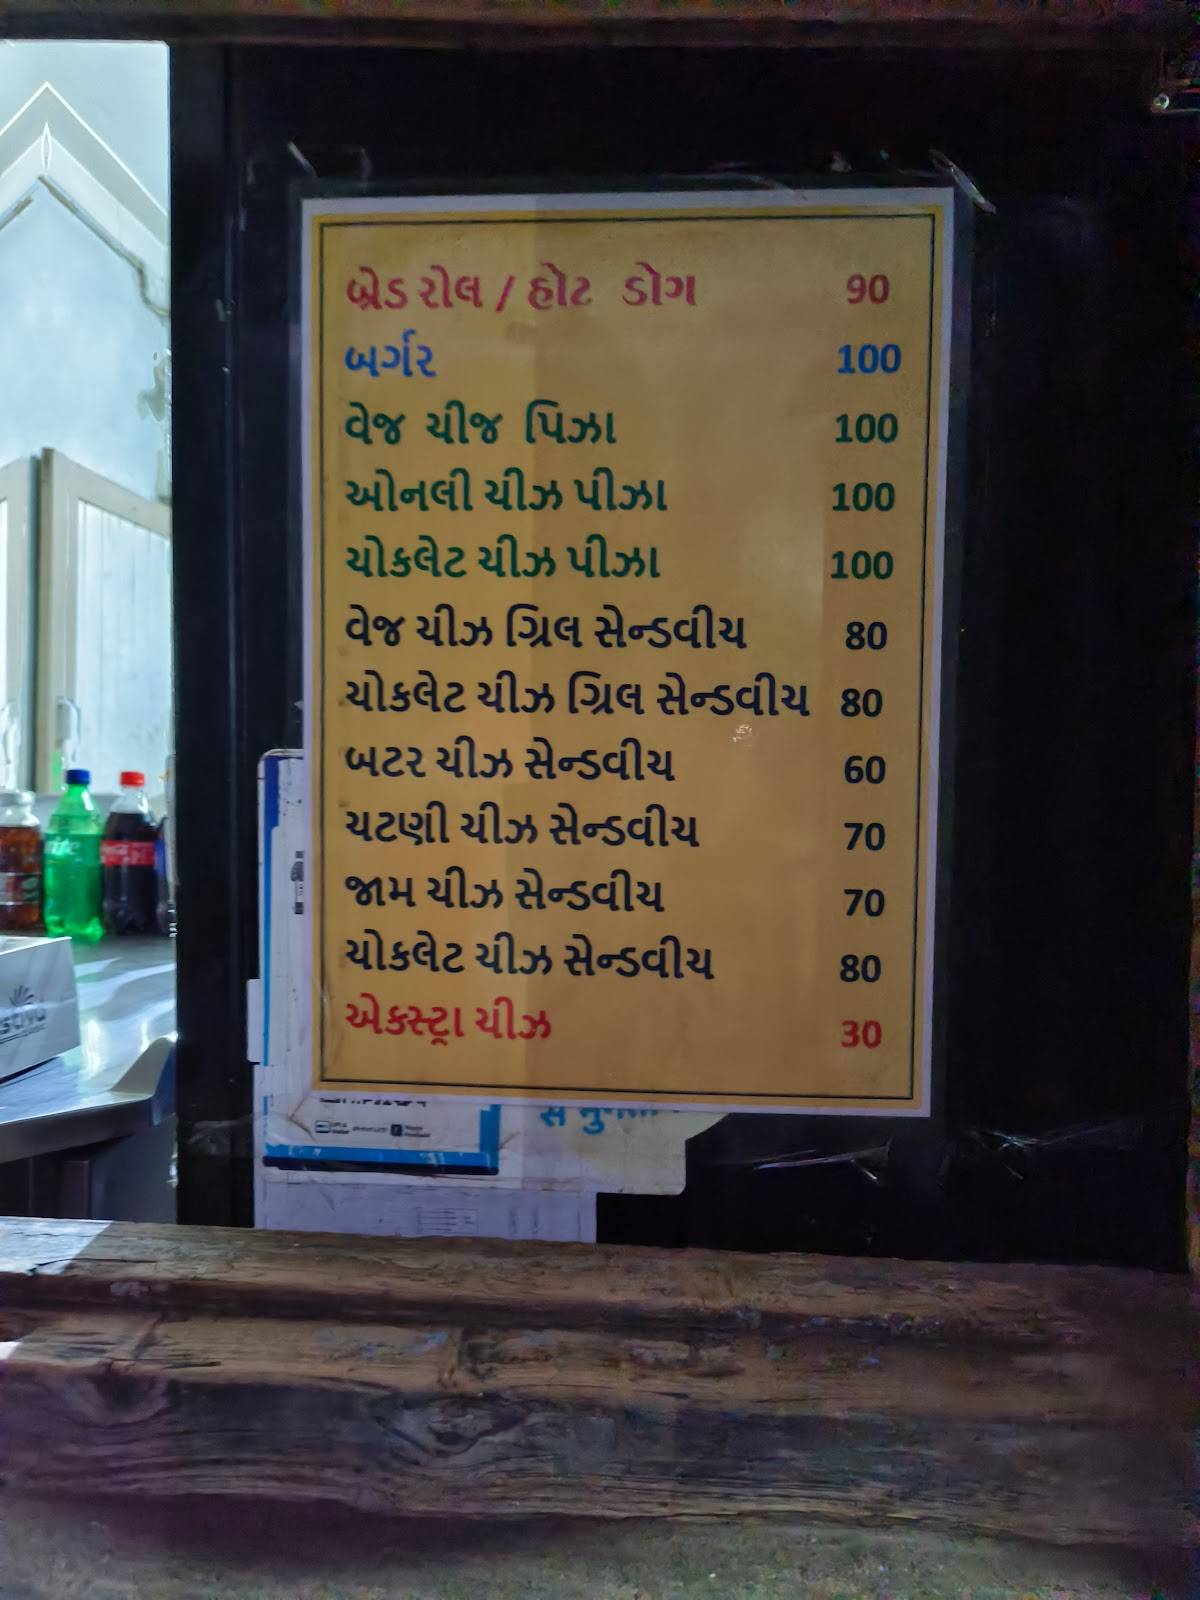 બ્રેડ રોલ / હોટ ડોગ 90
બર્ગર 100
વેજ ચીજ પિઝા 100
ઓનલી ચીઝ પીઝા 100
ચોકલેટ ચીઝ પીઝા 100
વેજ ચીઝ ગ્રિલ સેન્ડવીચ 80
ચોકલેટ ચીઝ ગ્રિલ સેન્ડવીચ 80
બટર ચીઝ સેન્ડવીચ 60
ચટણી ચીઝ સેન્ડવીચ 70
જામ ચીઝ સેન્ડવીચ 70
ચોકલેટ ચીઝ સેન્ડવીચ 80
એક્સ્ટ્રા ચીઝ 30